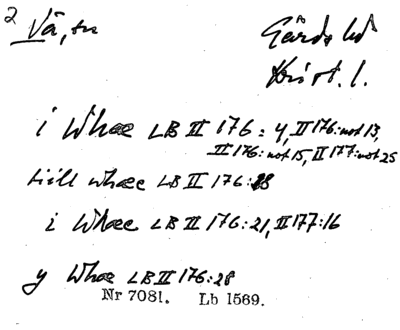 2 Vå, sn Gärds hd
Krist. l.
i Whæ LB II 176: 4, II 176: not 13,
II 176: not 15, II 177: not 25
till whæ LB II 176: 18
i Whæ LB II 176: 21, II 177: 16
y Whæ LB II 176: 28
Nr 7081. Lb 1569.